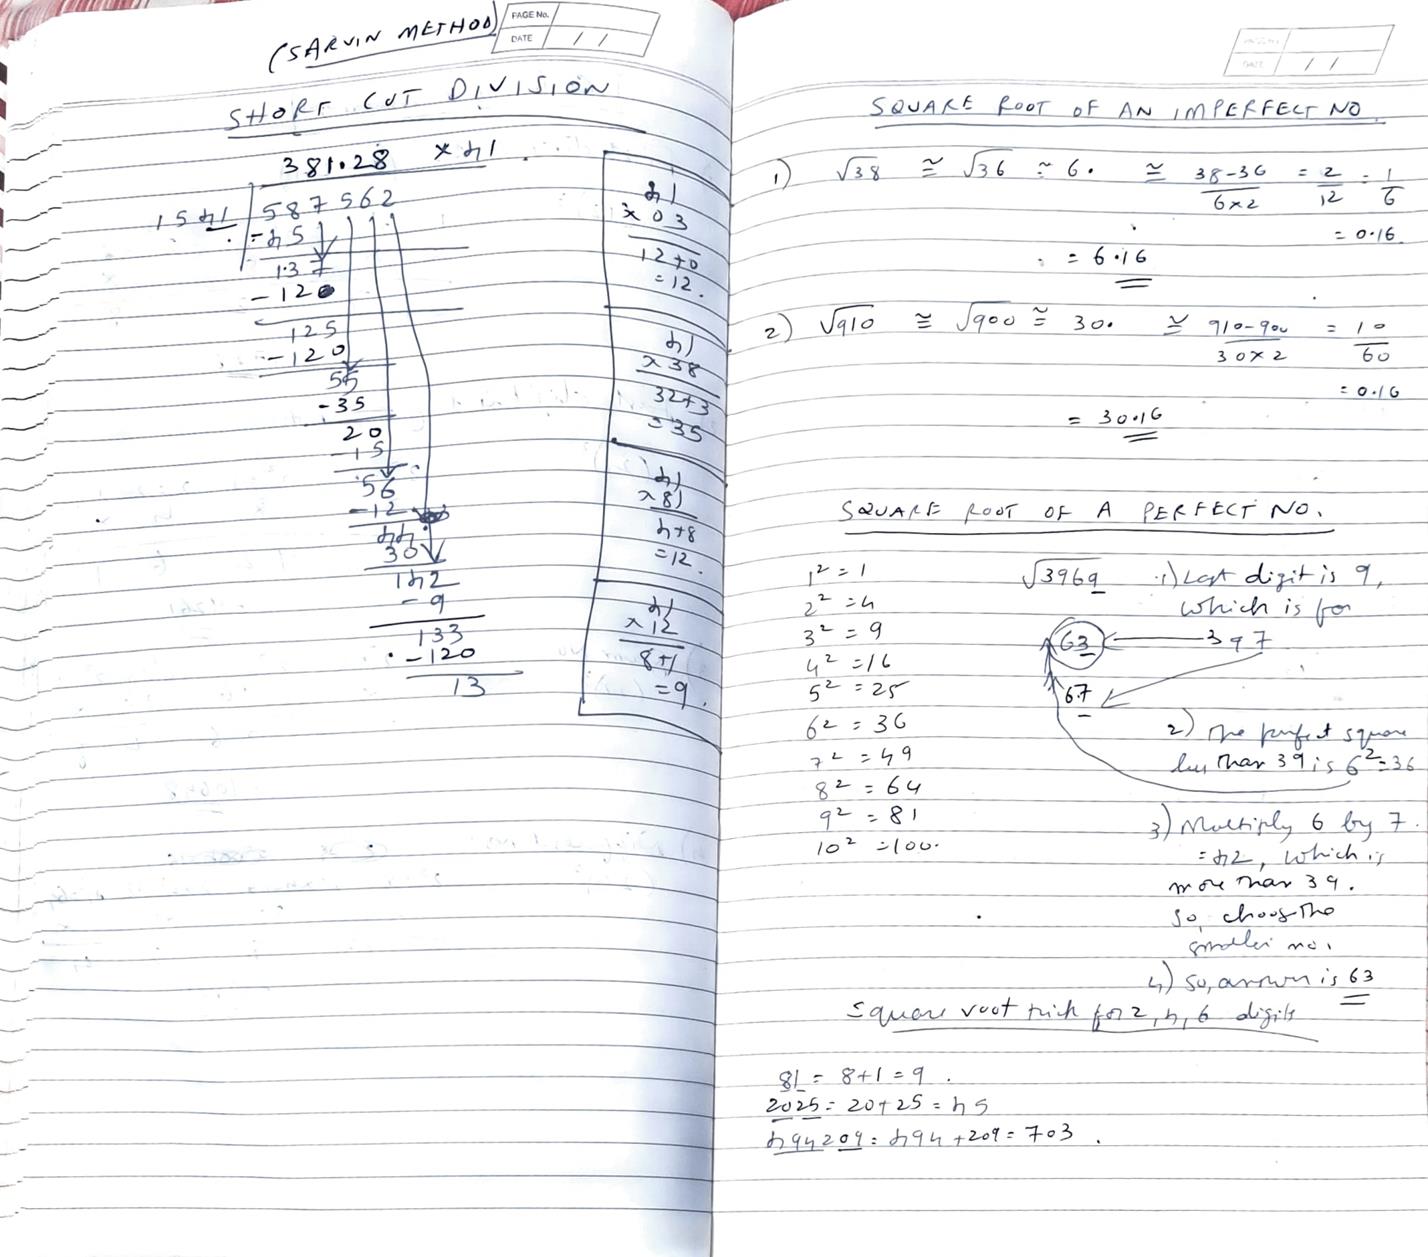 (SARVIN METHOD)
PAGE No.
DATE / /
SHORT CUT DIVISION
381.28 × 41
1541 587562
-45
137
-120
125
-120
55
-35
20
-15
56
-12
44
30
142
-9
133
-120
13
41
× 03
12+0
=12.
41
×38
32+3
=35
41
×81
4+8
=12.
41
×12
8+1
=9.
DATE / /
SQUARE ROOT OF AN IMPERFECT NO.
1) √38 ≅ √36 ≃ 6. ≅ 38-36/6×2 = 2/12 = 1/6
= 0.16
∴ = 6.16
2) √910 ≅ √900 ≅ 30. ≅ 910-900/30×2 = 10/60
= 0.16
= 30.16
SQUARE ROOT OF A PERFECT NO.
1² = 1
2² = 4
3² = 9
4² = 16
5² = 25
6² = 36
7² = 49
8² = 64
9² = 81
10² = 100.
√3969
1) Last digit is 9,
which is for
63 3 9 7
67
2) The perfect square
less than 39 is 6² = 36
3) Multiply 6 by 7.
= 42, which is
more than 39.
So, choose the
smaller no.
4) So, answer is 63
Square root trick for 2, 4, 6 digits
81 = 8+1 = 9.
2025 = 20+25 = 45
494209 = 494+209 = 703.